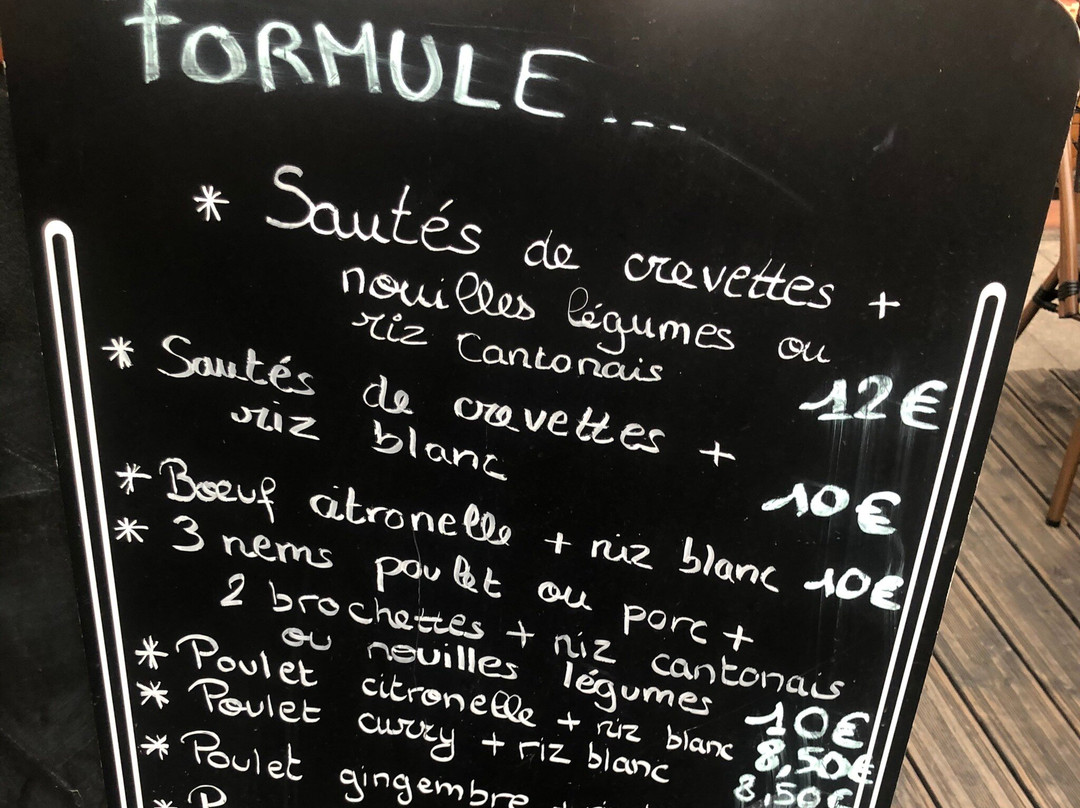 FORMULE...
* Sautés de crevettes +
nouilles légumes ou
riz Cantonais 12€
* Sautés de crevettes +
riz blanc 10€
* Boeuf citronelle + riz blanc 10€
* 3 nems poulet ou porc +
2 brochettes + riz cantonais
ou nouilles légumes 10€
* Poulet citronelle + riz blanc 8,50€
* Poulet curry + riz blanc 8,50€
* Poulet gingembre